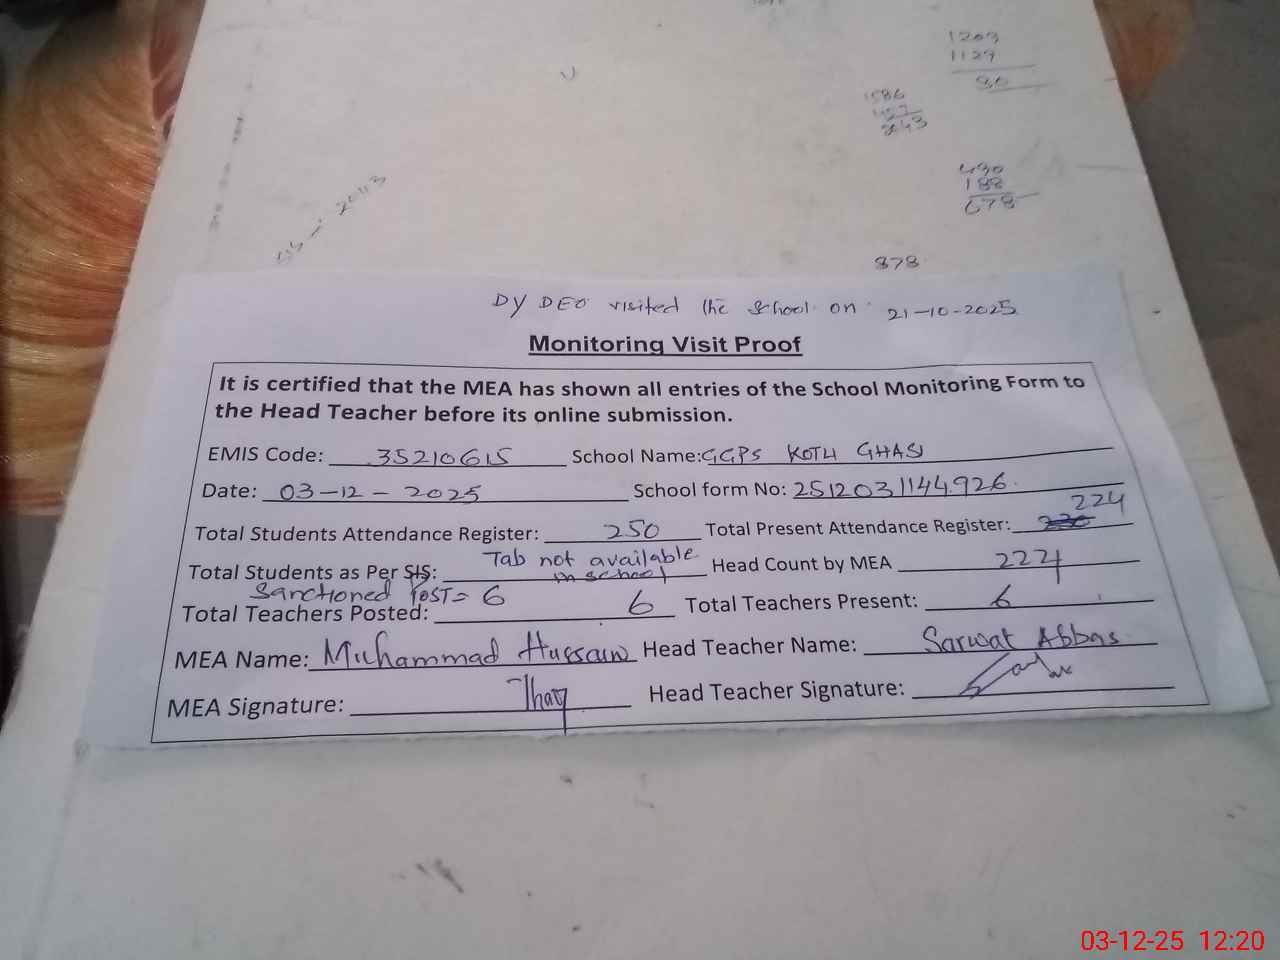 1209
1129
80
1586
457
2043
490
188
678
2043
878
DY DEO visited the School on 21-10-2025
Monitoring Visit Proof
It is certified that the MEA has shown all entries of the School Monitoring Form to
the Head Teacher before its online submission.
EMIS Code: 35210615 School Name: GGPS KOTLI GHASI
Date: 03-12-2025 School form No: 2512031144926
Total Students Attendance Register: 250 Total Present Attendance Register: 224
Total Students as Per SIS: Tab not available in school Head Count by MEA 224
Sanctioned POST = 6
Total Teachers Posted: 6 Total Teachers Present: 6
MEA Name: Muhammad Hussain Head Teacher Name: Sarwat Abbas
MEA Signature: Head Teacher Signature:
03-12-25 12:20